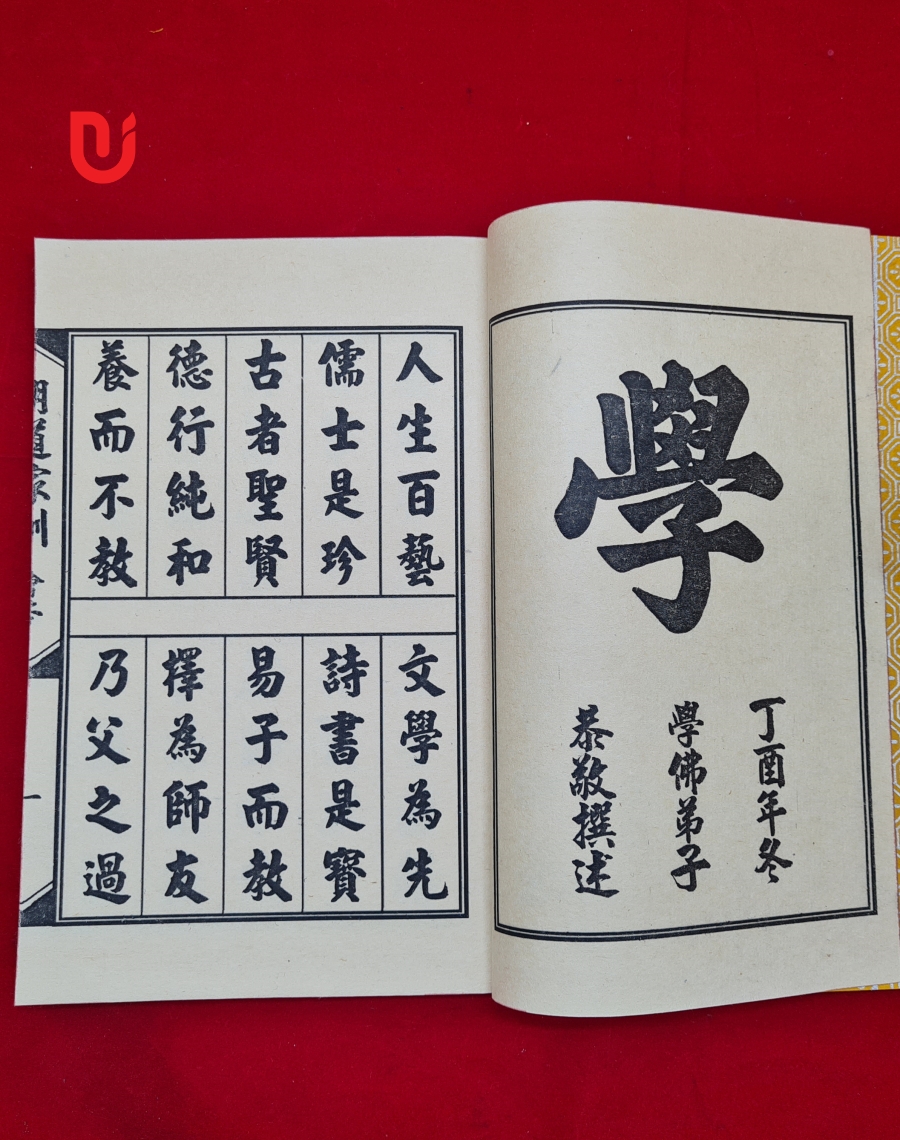 學
丁酉年冬
學佛弟子
恭敬撰述
人生百藝 文學為先
儒士是珍 詩書是寶
古者聖賢 易子而教
德行純和 擇為師友
養而不教 乃父之過
明道家訓
一